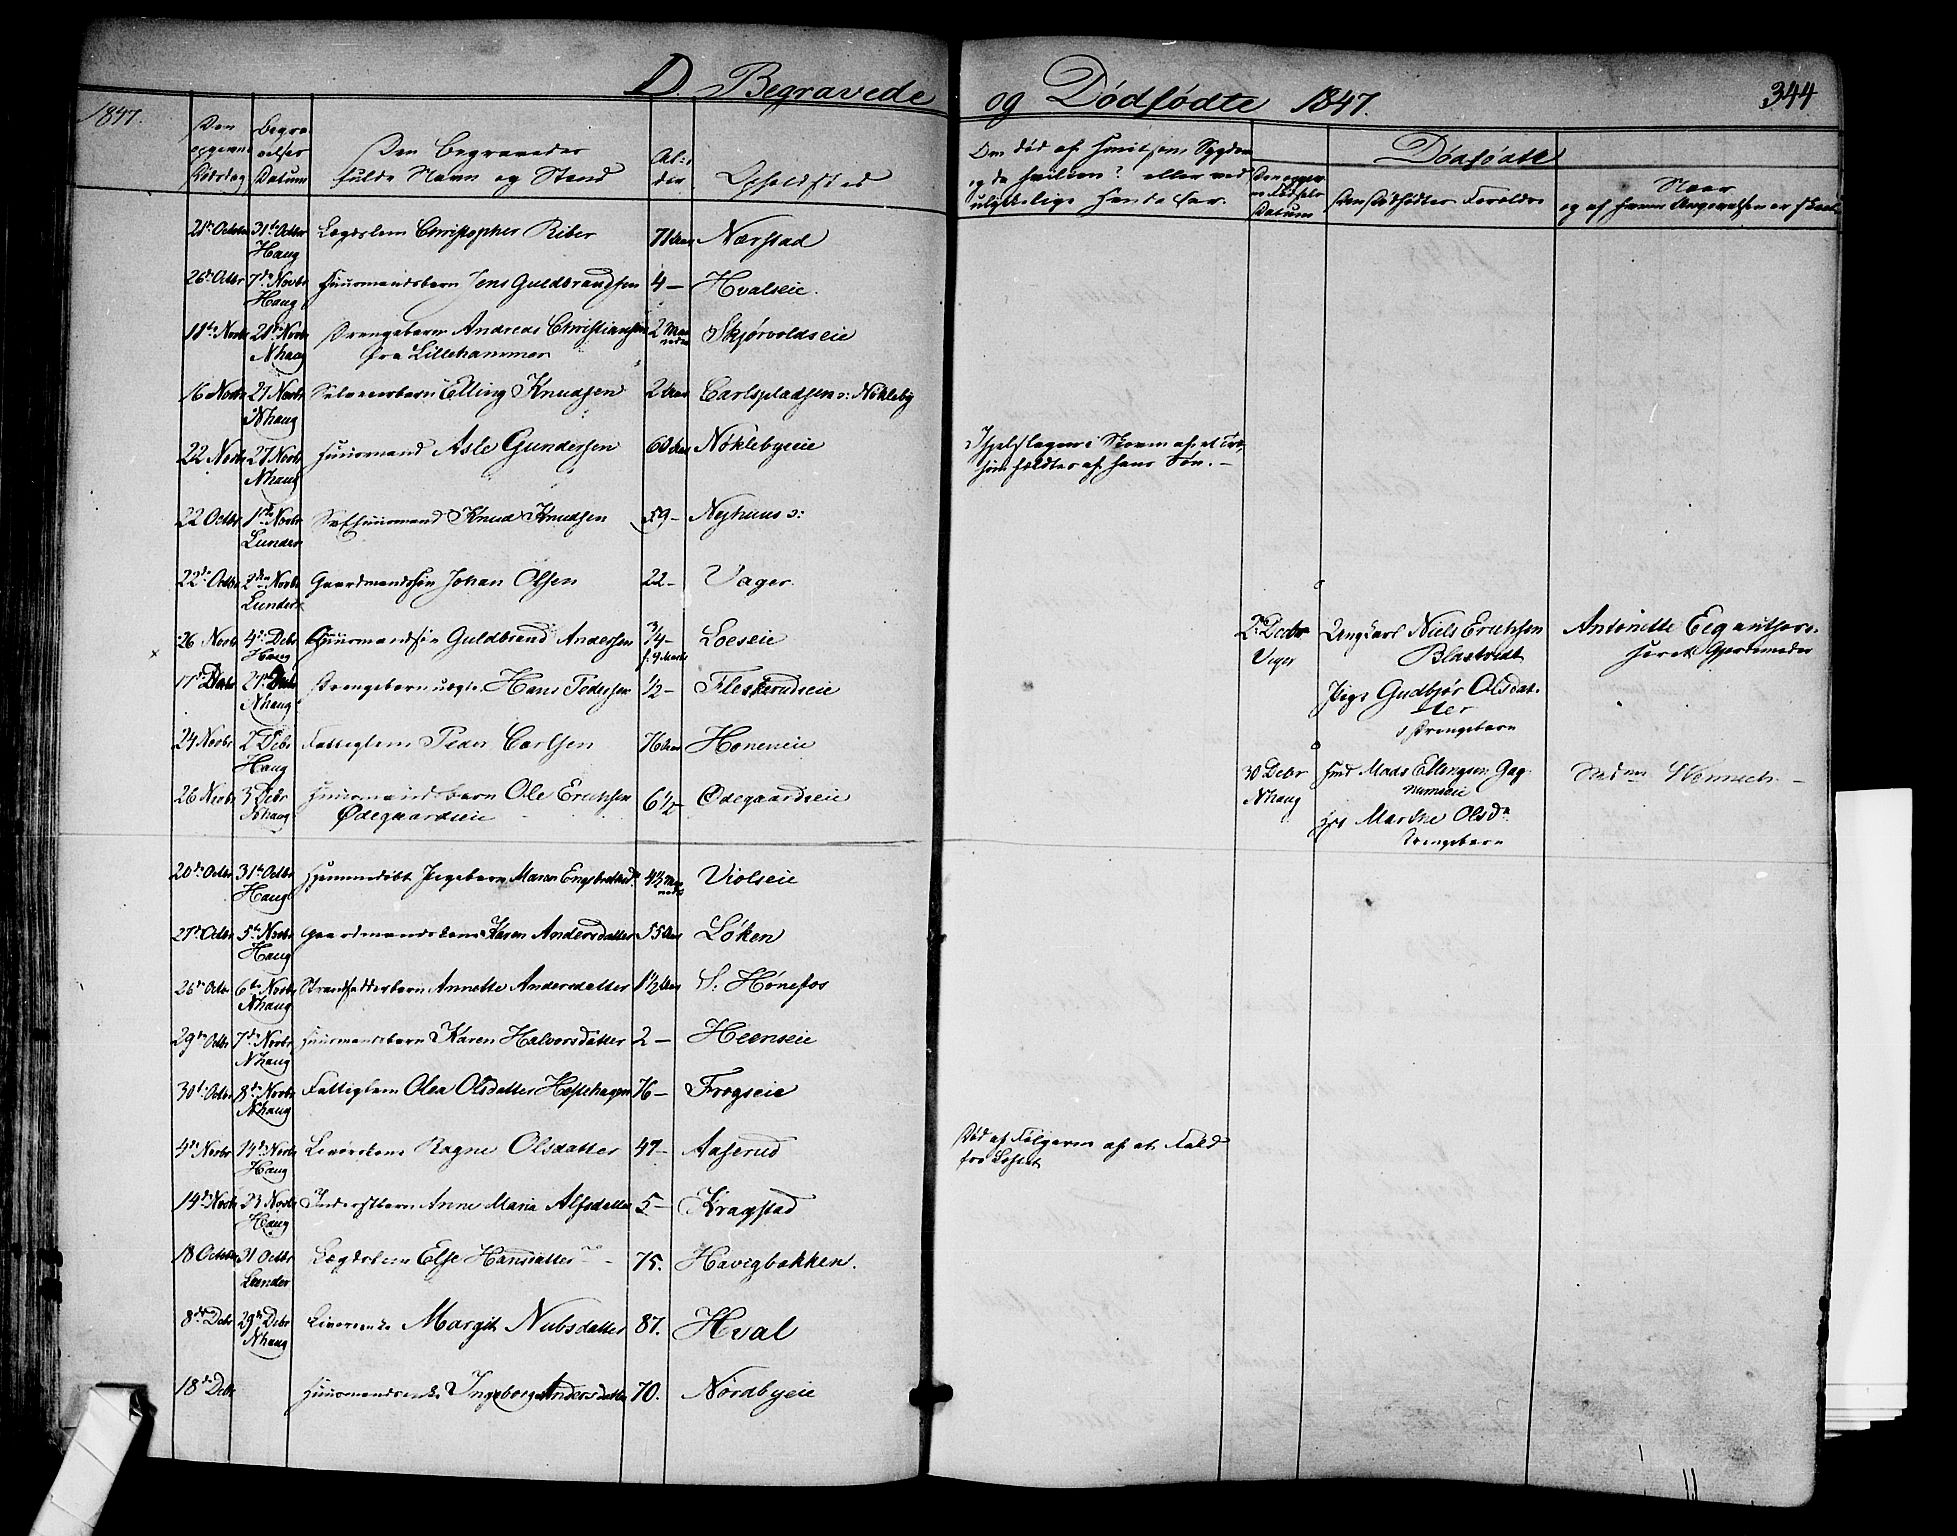 D. Begravede og Dødfødte 1847. 344
1847.
Den opgivne Dødsdag
Begravelses Datum
Den Begravedes fulde Navn og Stand
Alder
Opholdsted
Om død af smitsom Sygdom og da hvilken? eller ved ulykkelige Hændelser.
Dødfødte
Datum
Den Dødfødtes Forældre
Naar og af hvem Angivelsen er skeet
21de Octobr 31te Octbr Haug Lægdslem Christopher Riber 71 Aar Nærstad
26de Octbr 7de Novbr Haug Huusmandsbarn Jens Guldbrandsen 4 – Hvalseie.
18de Novbr 21de Novbr Nhaug Drengebarn Andreas Christiansen fra Lillehammer 2 Maaneder Skjørvoldseie
16 Novbr 27 Novbr Nhaug Selveierbarn Elling Knudsen 2 Aar Carlspladsen v: Nøkleby
22 Novbr 27 Novbr Nhaug Huusmand Asle Gundersen 60 Aar Nøklebyeie
Ihjelslagen i Skoven af et Træ, som fældtes af hans Søn. –
22 Octbr 1ste Novbr Lunder Huusmand Knud Knudsen 59 – Nyhuus v:
22de Octbr 2den Novbr Lunder Gaardmandssøn Johan Olsen 22 – Vager.
26 Novbr 4de Debr Haug Huusmandssøn Guldbrand Andersen 3/4 – Loeseie
2 Decbr Viger Ungkarl Niels Erichsen Blastvedt
Pige Gudbjør Olsdatter
Drengebarn
Antonette
17de Debr 27de Debr Nhaug Drengebarn uægte Hans Pedersen 1/2 – Fleskerudseie
24 Novbr 2 Debr Haug Fattiglem Peder Carlsen 76 Aar Honeneie
26 Novbr 3 Debr Nhaug Huusmandsbarn Ole Erichsen Ødegaardseie 6 1/2 – Ødegaardseie
30 Debr Nhaug Hmd Mads Ellingsen
Marthe Olsdr
Drengebarn
20de Octbr 31te Octbr Haug Hjemmedøbt Pigebarn Maren Engebretsdr 4 1/2 Maaneder Violseie
27de Octbr 5te Novbr Haug Gaardmandskone Karen Andersdatter 55 Aar Løken
26de Octbr 6te Novbr Nhaug Strandsidderbarn Annette Andersdatter 1 1/2 Aar S: Hønefos
29de Octbr 7de Novbr Nhaug Huusmandsbarn Karen Halvorsdatter 2 – Heenseie
30te Octbr 8de Novbr Nhaug Fattiglem Olea Olsdatter Hestehagen 76 – Frogseie
4de Novbr 14de Novbr Haug Ragne Olsdatter 47 – Aaserud
Død af Følgerne af et Fald fra Loftet
14de Novbr 23 Novbr Haug Inderstbarn Anne Maria Alfsdatter 5 – Kragstad
18 Octobr 31 Octbr Lunder Lægdslem Else Hansdatter 75. Havigbakken.
8de Debr 29de Debr Nhaug Margit Nubsdatter 87. Hval
18de Debr Huusmandsenke Ingeborg Andersdatter 70. Nordbyeie